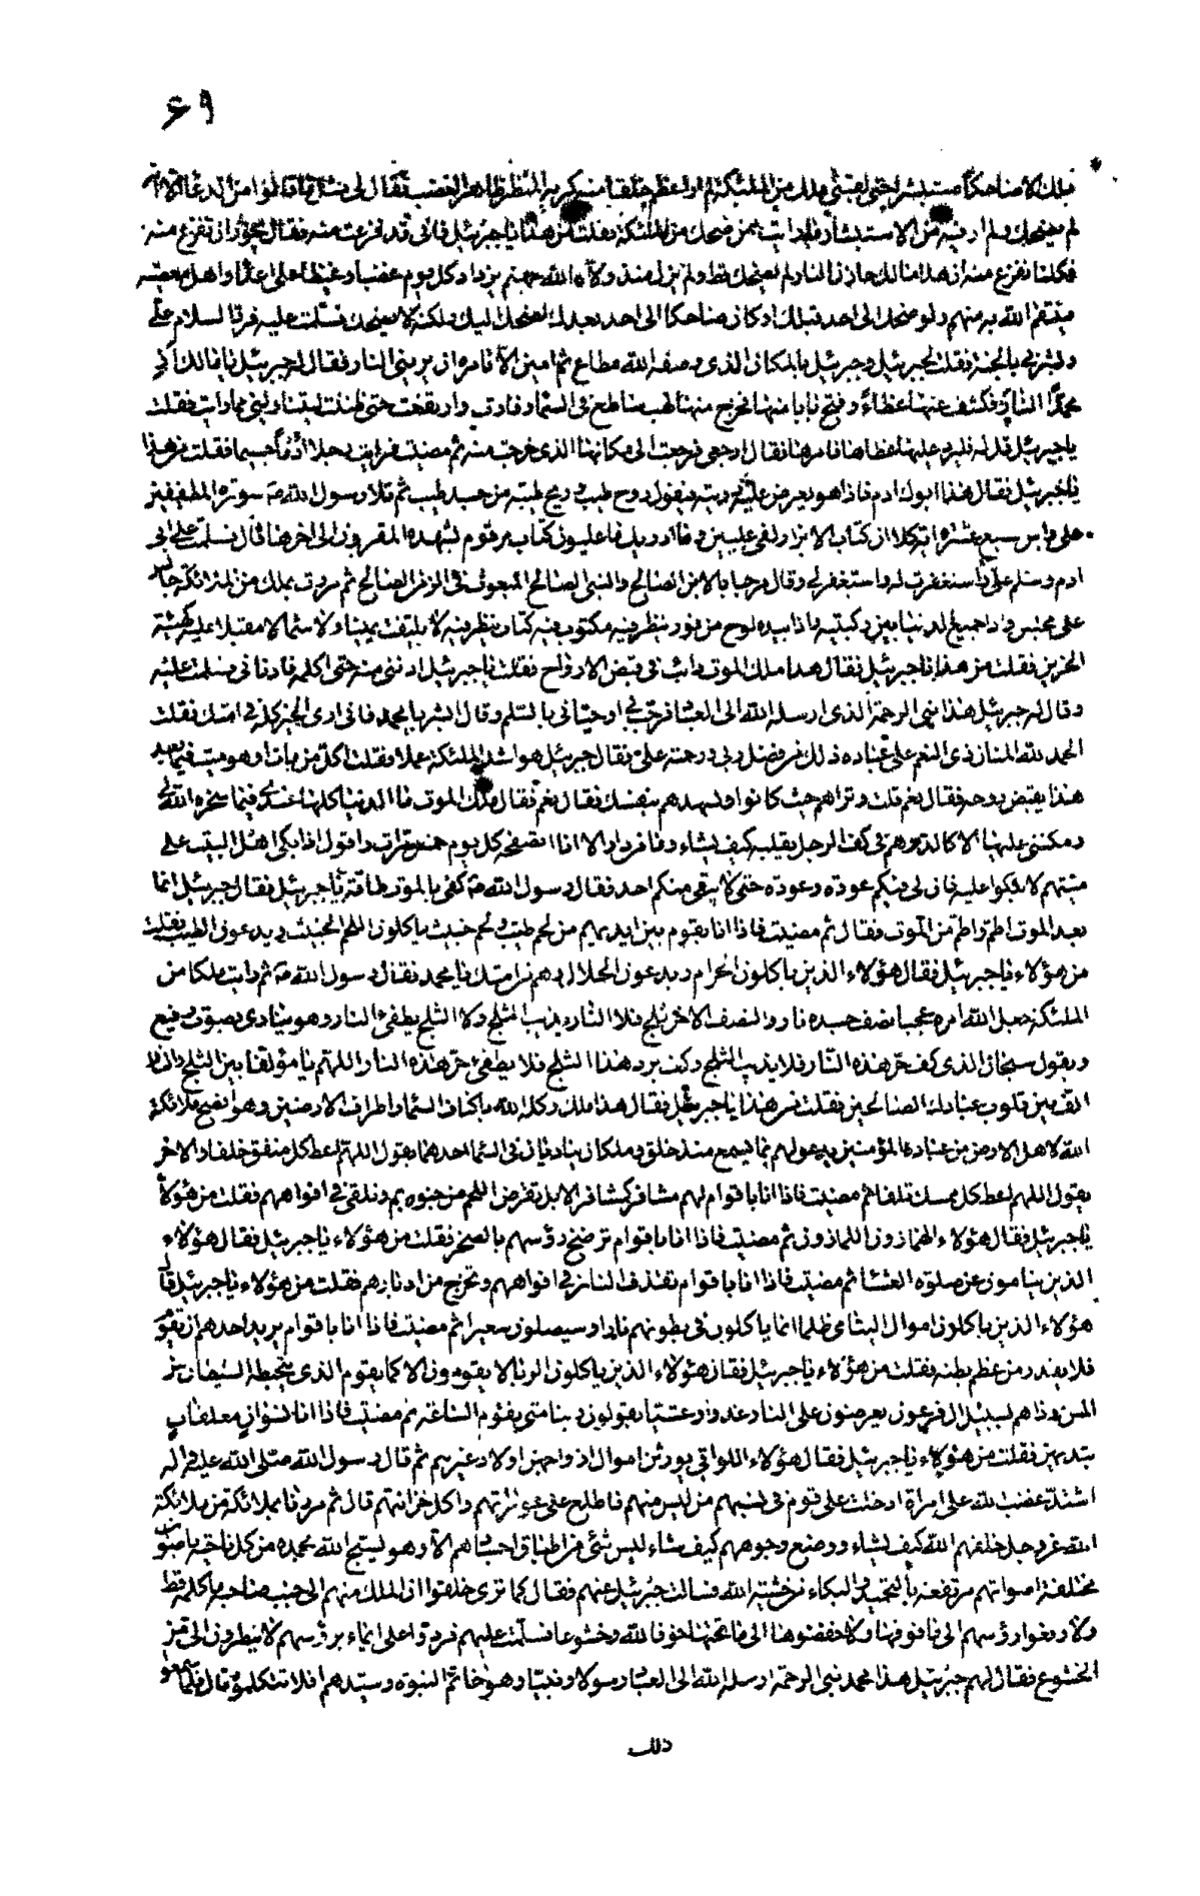 ۶۹
ملك الا ضاحكا مستبشرا حتى لقينى ملك من الملئكة لم ار اعظم خلقا منه كريه المنظر ظاهر الغضب فقال لى مثل ما قالوا من الدعا الا انه
لم يضحك ولم ار فيه من الاستبشار ما رايت ممن ضحك من الملئكة فقلت من هذا يا جبرئيل فانى قد فزعت منه فقال يجوز ان تفزع منه
فكلنا نفزع منه ان هذا مالك خازن النار لم يضحك قط ولم يزل منذ ولاه الله جهنم يزداد كل يوم غضبا وغيظا على اعداء الله واهل معصيته
فينتقم الله به منهم ولو ضحك الى احد قبلك او كان ضاحكا الى احد بعدك لضحك اليك ولكنه لا يضحك فسلمت عليه فرد السلام على
وبشرنى بالجنة فقلت لجبرئيل وجبرئيل بالمكان الذى وصفه الله مطاع ثم امين الا تامره ان يرينى النار فقال له جبرئيل يا مالك ار
محمدا النار فكشف عنها غطاء وفتح بابا منها فخرج منها لهب ساطع فى السماء وفارت وارتفعت حتى ظننت ليتناولنى مما رايت فقلت
يا جبرئيل قل له فليرد عليها غطاها فامرها فقال ارجعى فرجعت الى مكانها الذى خرجت منه ثم مضيت فرايت رجلا ادما جسيما فقلت من هذا
يا جبرئيل فقال هذا ابوك ادم فاذا هو يعرض عليه ذريته فيقول روح طيب وريح طيبة من جسد طيب ثم تلا رسول الله ص سورة المطففين
على راس سبع عشر اية كلا ان كتاب الابرار لفى عليين وما ادريك ما عليون كتاب مرقوم يشهده المقربون الى اخرها قال فسلمت على ابى
ادم وسلم على واستغفرت له واستغفر لى وقال مرحبا بالابن الصالح والنبى الصالح المبعوث فى الزمن الصالح ثم مررت بملك من الملائكة جالس
على مجلس واذا جميع الدنيا بين ركبتيه واذا بيده لوح من نور ينظر فيه مكتوب فيه كتاب ينظر فيه لا يلتفت يمينا ولا شمالا مقبلا عليه كهيئة
الحزين فقلت من هذا يا جبرئيل فقال هذا ملك الموت دائب فى قبض الارواح فقلت يا جبرئيل ادننى منه حتى اكلمه فادنانى منه فسلمت عليه
وقال له جبرئيل هذا نبى الرحمة الذى ارسله الله الى العباد فرحب بى وحيانى بالسلم وقال ابشر يا محمد فانى ارى الخير كله فى امتك فقلت
الحمد لله المنان ذى النعم على عباده ذلك من فضل ربى ورحمته على فقال جبرئيل هو اشد الملئكة عملا فقلت اكل من مات او هو ميت فيما بعد
هذا يقبض روحه فقال نعم قلت وتراهم حيث كانوا وتشهدهم بنفسك فقال نعم فقال ملك الموت ما الدنيا كلها عندى فيما سخره الله لى
ومكننى عليها الا كالدرهم فى كف الرجل يقلبه كيف يشاء وما من دار الا انا اتصفحه كل يوم خمس مرات واقول اذا بكى اهل البيت على
ميتهم لا تبكوا عليه فان لى فيكم عودة وعودة حتى لا يبقى منكم احد فقال رسول الله ص كفى بالموت طامة يا جبرئيل فقال جبرئيل ان ما
بعد الموت اطم واطم من الموت فقال ثم مضيت فاذا انا بقوم بين ايديهم من لحم طيب ولحم خبيث ياكلون اللحم الخبيث ويدعون الطيب فقلت
من هؤلاء يا جبرئيل فقال هؤلاء الذين ياكلون الحرام ويدعون الحلال وهم من امتك يا محمد فقال رسول الله ص ثم رايت ملكا من
الملئكة جعل الله امره عجبا نصف جسده نار والنصف الاخر ثلج فلا النار يذيب الثلج ولا الثلج يطفئ النار وهو ينادى بصوت رفيع
ويقول سبحان الذى كف حر هذه النار فلا يذيب الثلج وكف برد هذا الثلج فلا يطفئ حر هذه النار اللهم يا مؤلفا بين الثلج والنار
الف بين قلوب عبادك الصالحين فقلت من هذا يا جبرئيل فقال هذا ملك وكله الله باكناف السماء واطراف الارضين وهو انصح ملائكة
الله لاهل الارض من عباده المؤمنين يدعو لهم بما تسمع منذ خلق وملكان يناديان فى السماء احدهما يقول اللهم اعط كل منفق خلفا والاخر
يقول اللهم اعط كل ممسك تلفا ثم مضيت فاذا انا باقوام لهم مشافر كمشافر الابل تقرض اللحم من جنوبهم وتلقى فى افواههم فقلت من هؤلاء
يا جبرئيل فقال هؤلاء الهمازون اللمازون ثم مضيت فاذا انا باقوام ترضخ رؤسهم بالصخر فقلت من هؤلاء يا جبرئيل فقال هؤلاء
الذين ينامون عن صلوة العشا ثم مضيت فاذا انا باقوام تقذف النار فى افواههم وتخرج من ادبارهم فقلت من هؤلاء يا جبرئيل قال
هؤلاء الذين ياكلون اموال اليتامى ظلما انما ياكلون فى بطونهم نارا وسيصلون سعيرا ثم مضيت فاذا انا باقوام يريد احدهم ان يقوم
فلا يقدر من عظم بطنه فقلت من هؤلاء يا جبرئيل فقال هؤلاء الذين ياكلون الربا لا يقومون الا كما يقوم الذى يتخبطه الشيطان من
المس واذا هم بسبيل ال فرعون يعرضون على النار غدوا وعشيا يقولون ربنا متى تقوم الساعة ثم مضيت فاذا انا بنسوان معلقات
بثديهن فقلت من هؤلاء يا جبرئيل فقال هؤلاء اللواتى يورثن اموال ازواجهن اولاد غيرهم ثم قال رسول الله صلى الله عليه واله
اشتد غضب الله على امراة ادخلت على قوم فى نسبهم من ليس منهم فاطلع على عوراتهم واكل خزائنهم قال ثم مررنا بملائكة من ملائكة
الله عز وجل خلقهم الله كيف يشاء ووضع وجوههم كيف شاء ليس شئ من اطباق اجسادهم الا وهو يسبح الله بحمده من كل ناحية باصوات
مختلفة اصواتهم مرتفعة بالتحميد والبكاء من خشية الله فسالت جبرئيل عنهم فقال كما ترى خلقوا ان الملك منهم الى جنب صاحبه ما كلمه قط
ولا رفعوا رؤسهم الى ما فوقها ولا خفضوها الى ما تحتها خوفا لله وخشوعا فسلمت عليهم فردوا على ايماء برؤسهم لا ينظرون الى من
الخشوع فقال لهم جبرئيل هذا محمد نبى الرحمة ارسله الله الى العباد رسولا ونبيا وهو خاتم النبوة وسيدهم افلا تتكلموه قال فلما سمعوا
ذلك